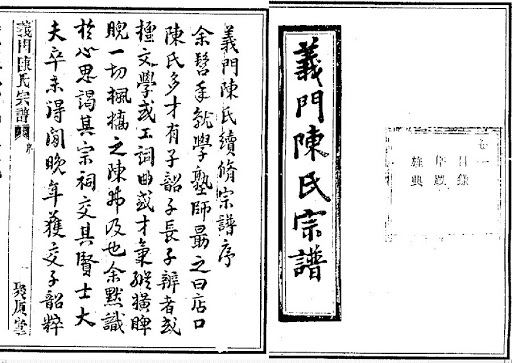 義門陳氏宗譜
卷一
目錄
序跋
雜典
義門陳氏續脩宗譜序
余髫年就學塾師最之曰店口
陳氏多才有子韶子長子辨者或
種文學或工詞曲或才氣縱橫睥
睨一切概稿之陳弗及也余默識
於心思謁其宗祠交其賢士大
夫卒未得間晚年獲交子韶粹
義門陳氏宗譜
序
聚原堂